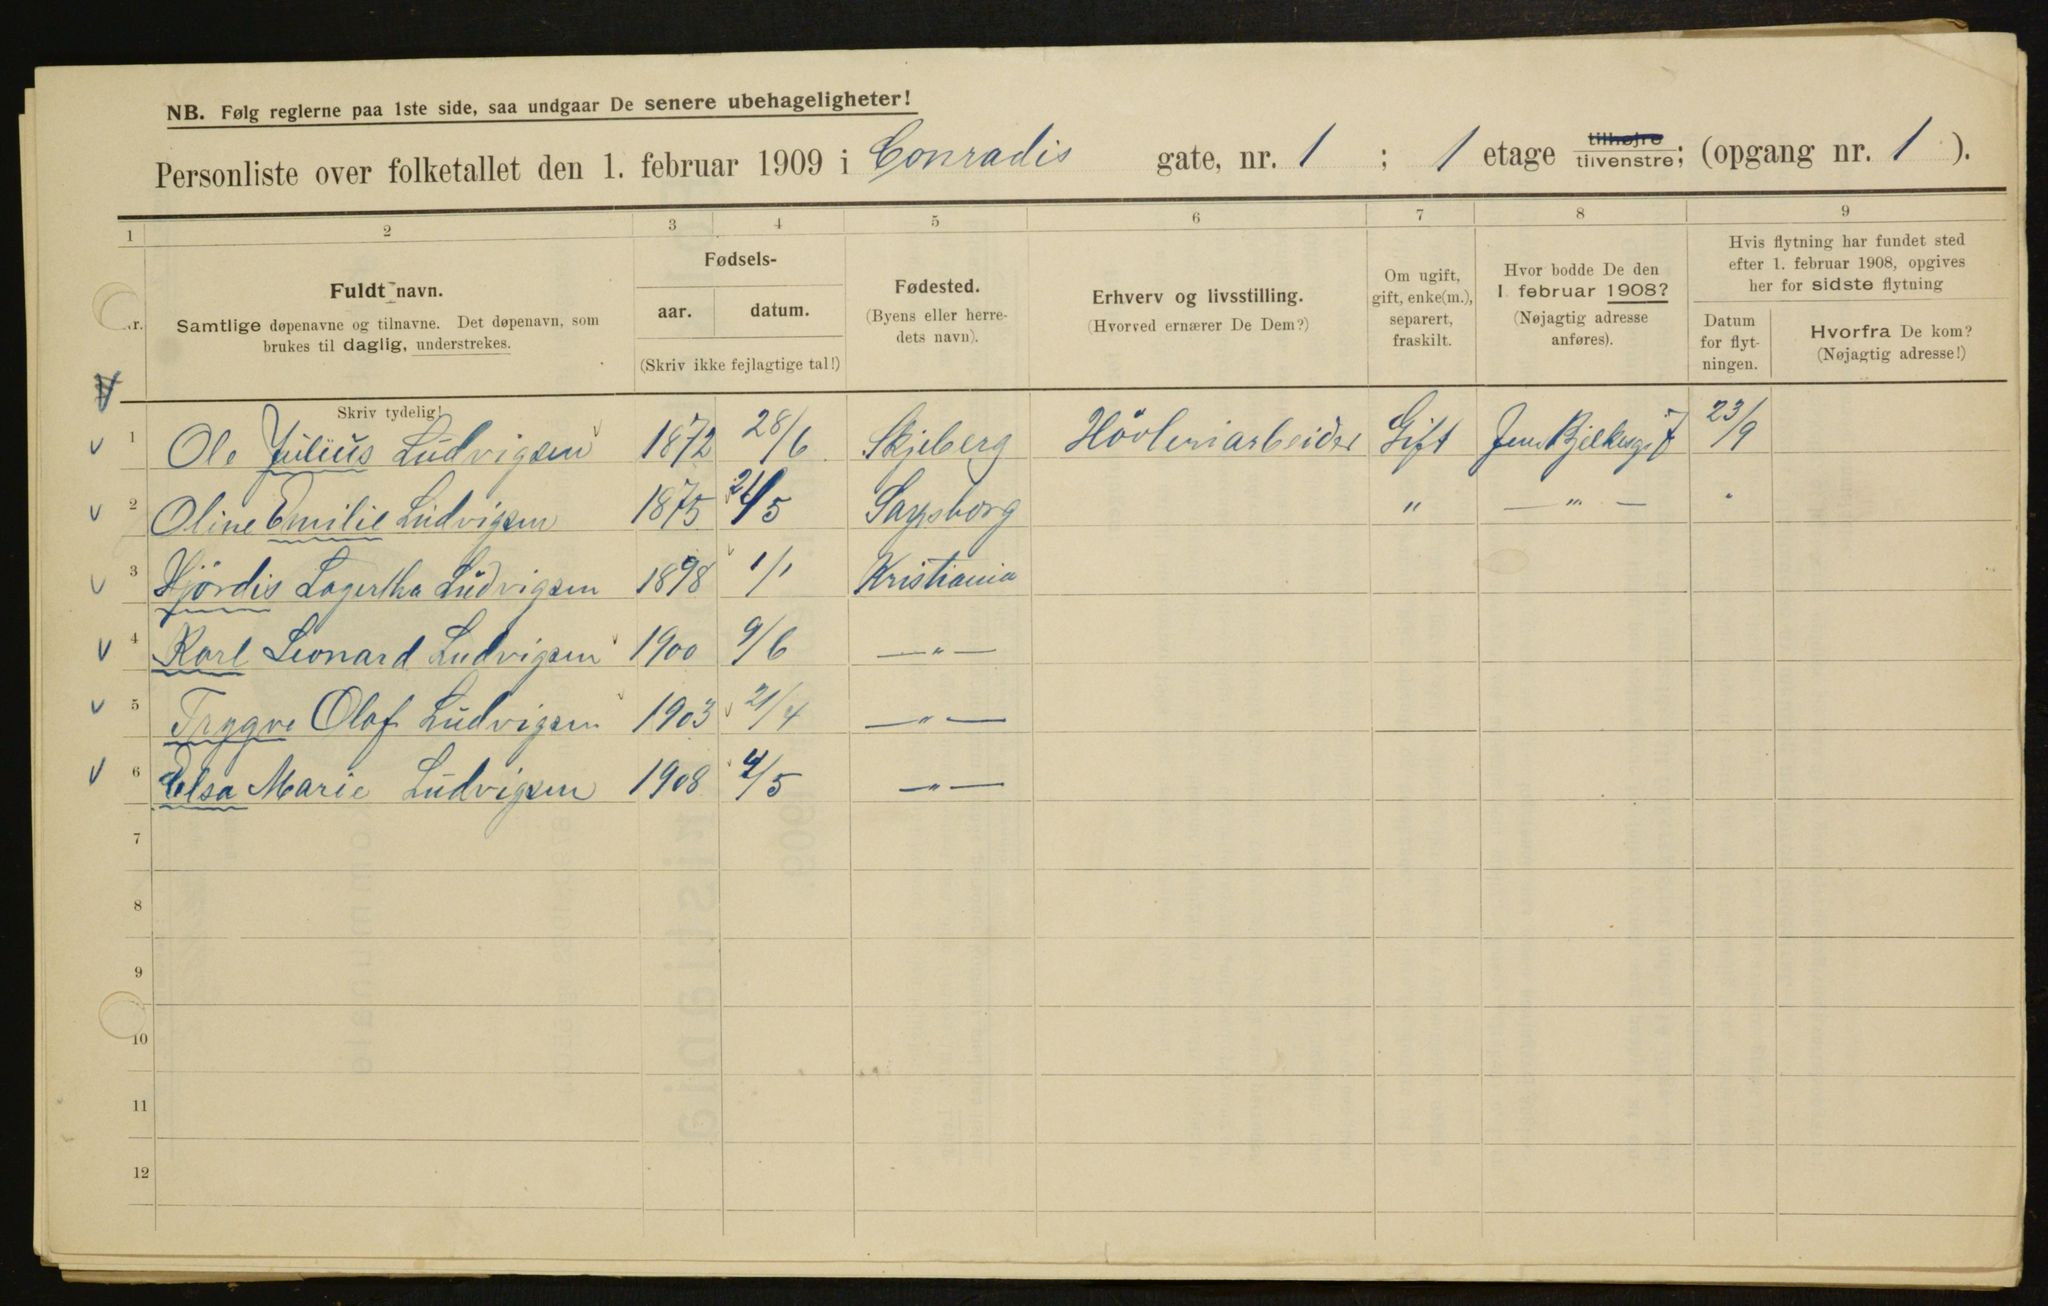 NB. Følg reglerne paa 1ste side, saa undgaar De senere ubehageligheter!
Personliste over folketallet den 1. februar 1909 i Conradis gate, nr. 1 ; 1 etage tilhøjre tilvenstre; (opgang nr. 1 ).
1 2 3 4 5 6 7 8 9
Nr.
Fuldt navn.
Samtlige døpenavne og tilnavne. Det døpenavn, som
brukes til daglig, understrekes.
Skriv tydelig!
Fødsels-
aar. datum.
(Skriv ikke fejlagtige tal!)
Fødested.
(Byens eller herre-
dets navn).
Erhverv og livsstilling.
(Hvorved ernærer De Dem?)
Om ugift,
gift, enke(m.),
separert,
fraskilt.
Hvor bodde De den
1. februar 1908?
(Nøjagtig adresse
anføres).
Hvis flytning har fundet sted
efter 1. februar 1908, opgives
her for sidste flytning
Datum
for flyt-
ningen.
Hvorfra De kom?
(Nøjagtig adresse!)
1 Ole Julius Ludvigsen 1872 28/6 Skjeberg Hövleriarbeider Gift Jens Bjelkesgt 23/9
2 Oline Emilie Ludvigsen 1875 Sarpsborg " — " — "
3 Hjördis Lagertha Ludvigsen 1898 1/1 Kristiania
4 Karl Leonard Ludvigsen 1900 9/6 — " —
5 Trygve Olaf Ludvigsen 1903 21/4 — " —
6 Elsa Marie Ludvigsen 1908 4/5 — " —
7
8
9
10
11
12